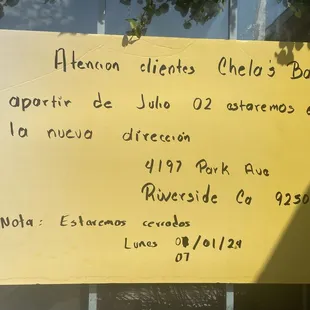 Atencion clientes Chela's Ba
apartir de Julio 02 estaremos e
la nueva dirección
4197 Park Ave
Riverside Ca 9250
Nota: Estaremos cerrados
Lunes 07/01/24
07